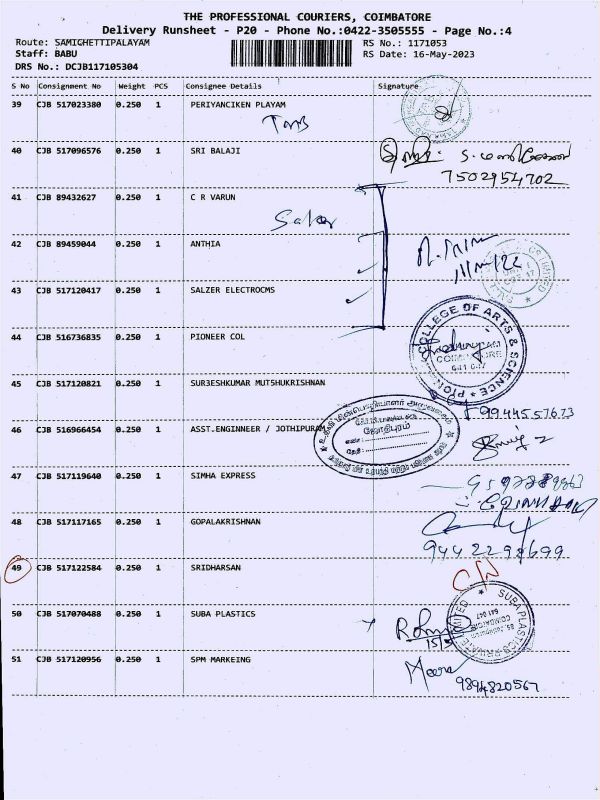 THE PROFESSIONAL COURIERS, COIMBATORE
Delivery Runsheet - P20 - Phone No.:0422-3505555 - Page No.:4
Route: SAMIGHETTIPALAYAM RS No.: 1171053
Staff: BABU RS Date: 16-May-2023
DRS No.: DCJB117105304
S No Consignment No Weight PCS Consignee Details Signature
39 CJB 517023380 0.250 1 PERIYANCIKEN PLAYAM
40 CJB 517096576 0.250 1 SRI BALAJI
7502954702
41 CJB 89432627 0.250 1 C R VARUN
42 CJB 89459044 0.250 1 ANTHIA
43 CJB 517120417 0.250 1 SALZER ELECTROCMS
44 CJB 516736835 0.250 1 PIONEER COL
COLLEGE OF ARTS & SCIENCE
45 CJB 517120821 0.250 1 SUR3ESHKUMAR MUT5HUKRISHNAN
9944557673
46 CJB 516966454 0.250 1 ASST.ENGINNEER / JOTHIPURAM
ஜோதிபுரம்
47 CJB 517119640 0.250 1 SIMHA EXPRESS
48 CJB 517117165 0.250 1 GOPALAKRISHNAN
9442298699
49 CJB 517122584 0.250 1 SRIDHARSAN
50 CJB 517070488 0.250 1 SUBA PLASTICS
SUBA PLASTICS PRIVATE LIMITED
51 CJB 517120956 0.250 1 SPM MARKEING
Meera
9894820567